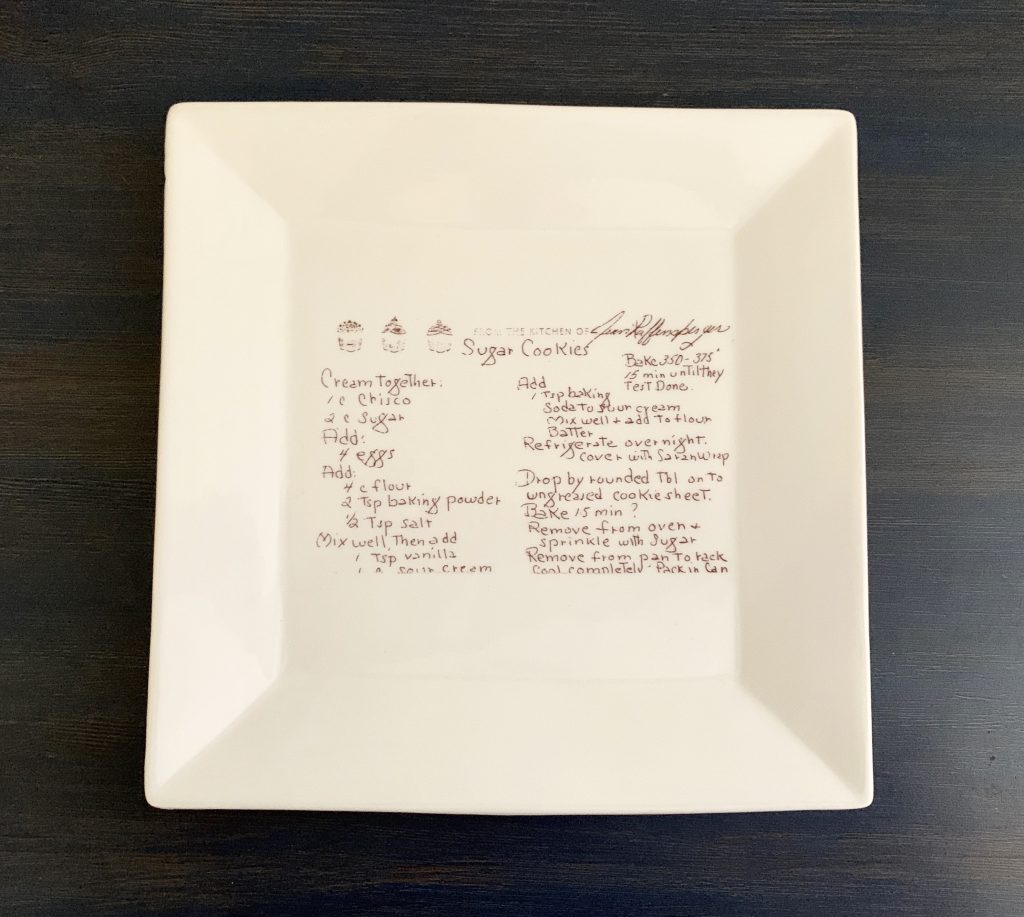 FROM THE KITCHEN OF Jean Raffensperger
Sugar Cookies
Bake 350-375°
15 min until they
Test Done.
Cream Together:
1 c Crisco
2 c Sugar
Add:
4 eggs
Add:
4 c flour
2 Tsp baking powder
1/2 Tsp salt
Mix well, Then add
1 Tsp vanilla
1 c sour cream
Add
1 Tsp baking
Soda to sour cream
Mix well + add To flour
Batter
Refrigerate overnight.
Cover with Saran Wrap
Drop by rounded Tbl on to
ungreased cookie sheet.
Bake 15 min ?
Remove from oven +
sprinkle with Sugar
Remove from pan To rack
Cool completely Pack in Can